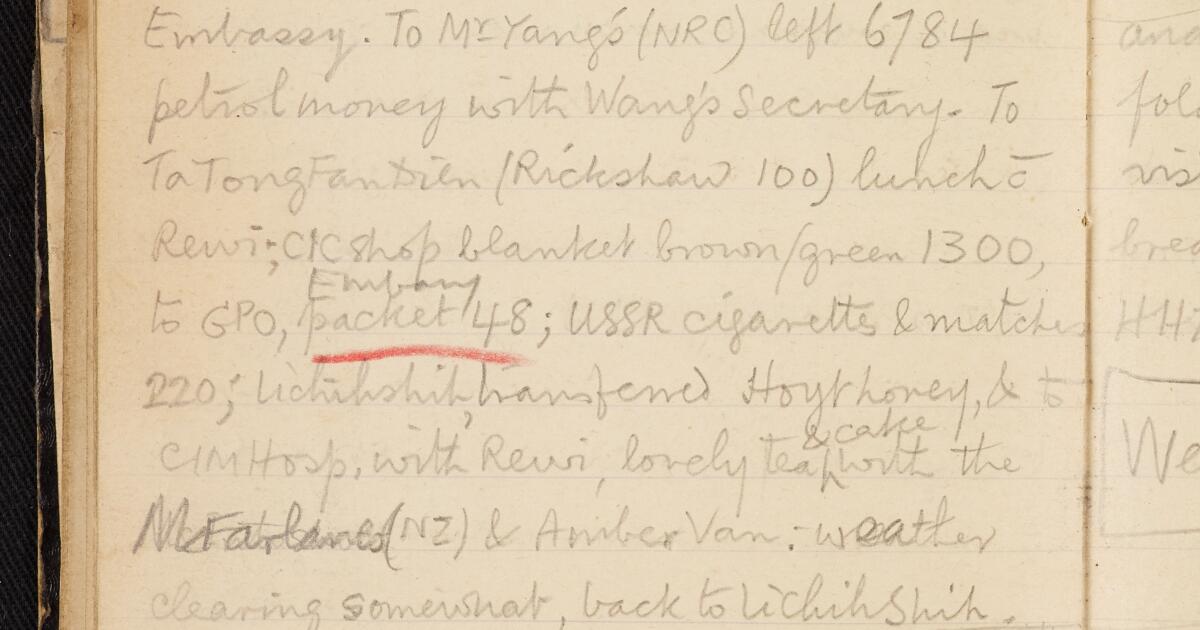 Embassy. To Mr Yang's (NRC) left 6784 and
petrol money with Wang's Secretary. To
TaTongFanDien (Rickshaw 100) lunch c̄
Rewi; CIC shop blanket brown/green 1300,
Embassy
to GPO, packet 48; USSR cigarettes & matches
220; Lichihshih, transferred Hoyt honey, & to
& cake
CIM Hosp. with Rewi, lovely tea with the We
McFarlanes (NZ) & Amber Van: weather
clearing somewhat, back to Lichihshih.